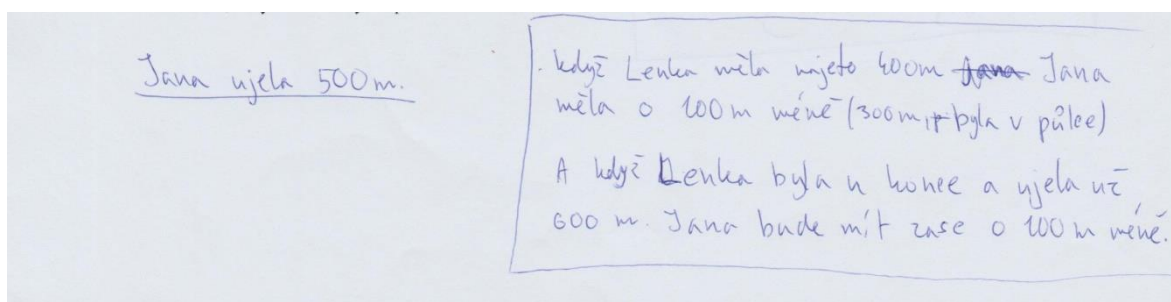 Jana ujela 500m.
Když Lenka měla najeto 400m Jana
měla o 100m méně (300m, byla v půlce)
A když Lenka byla u konce a ujela už
600 m. Jana bude mít zase o 100m méně.